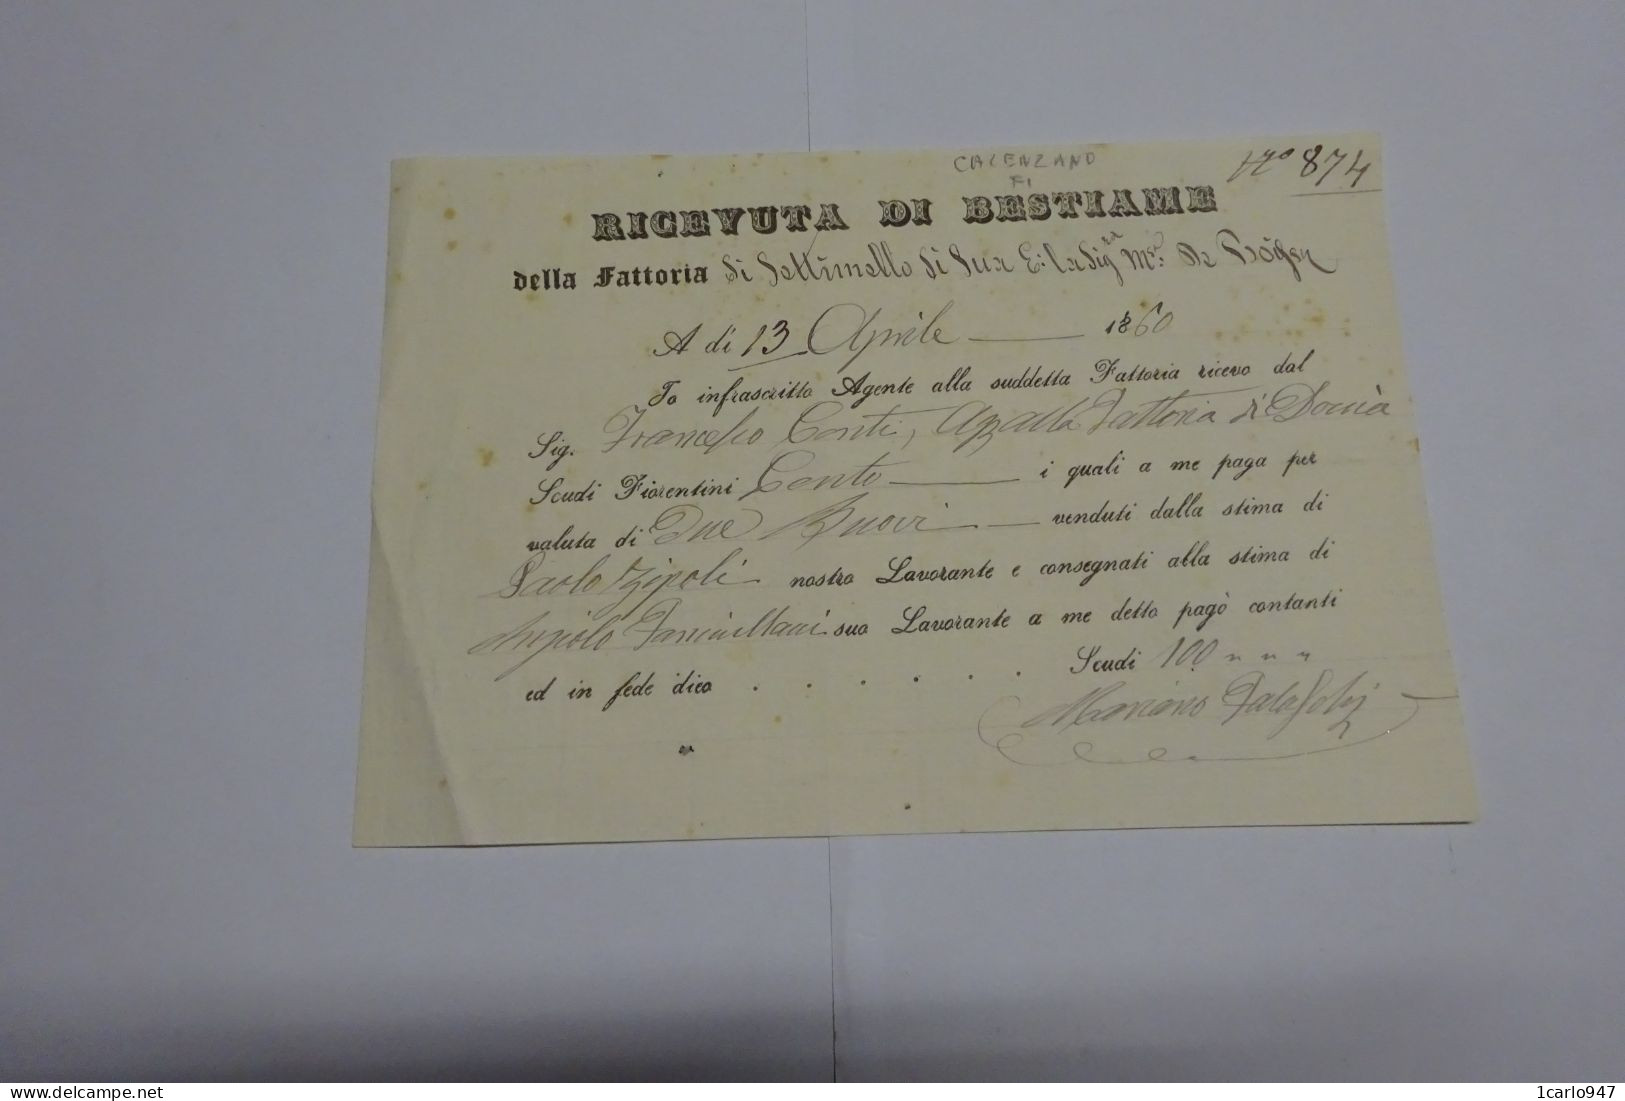 CALENZANO
FI
Nº 874
RICEVUTA DI BESTIAME
della Fattoria di Settimello di Sua E: la Sig.ra M.sa De
A dì 13 Aprile 1860
Io infrascritto Agente alla suddetta Fattoria ricevo dal
Sig. Francesco Conti, Ag. alla Fattoria di Doccia
Scudi Fiorentini Cento i quali a me paga per
valuta di Due Buovi venduti dalla stima di
Paolo Zipoli nostro Lavorante e consegnati alla stima di
Angiolo suo Lavorante a me detto pagò contanti
ed in fede dico . . . . . . Scudi 100 " " "
Mariano
delcampe.net
1carlo947